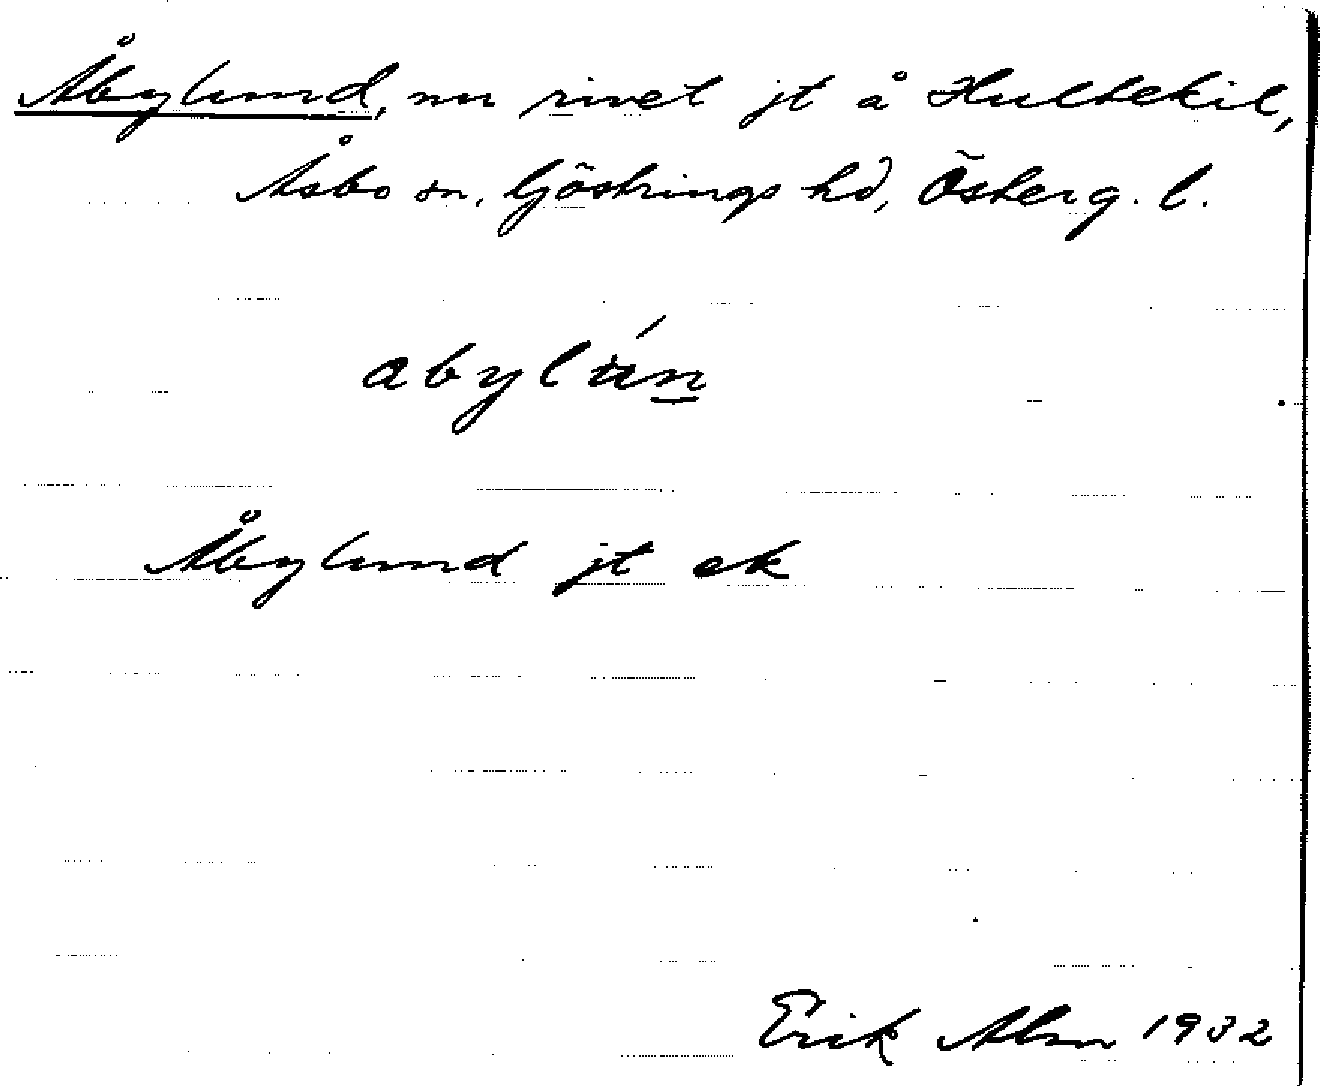 Åbylund, nu rivet jt å Hultekil,
Åsbo sn, Göstrings hd, Österg. l.
abylún
Åbylund jt ek
Erik Alm 1932